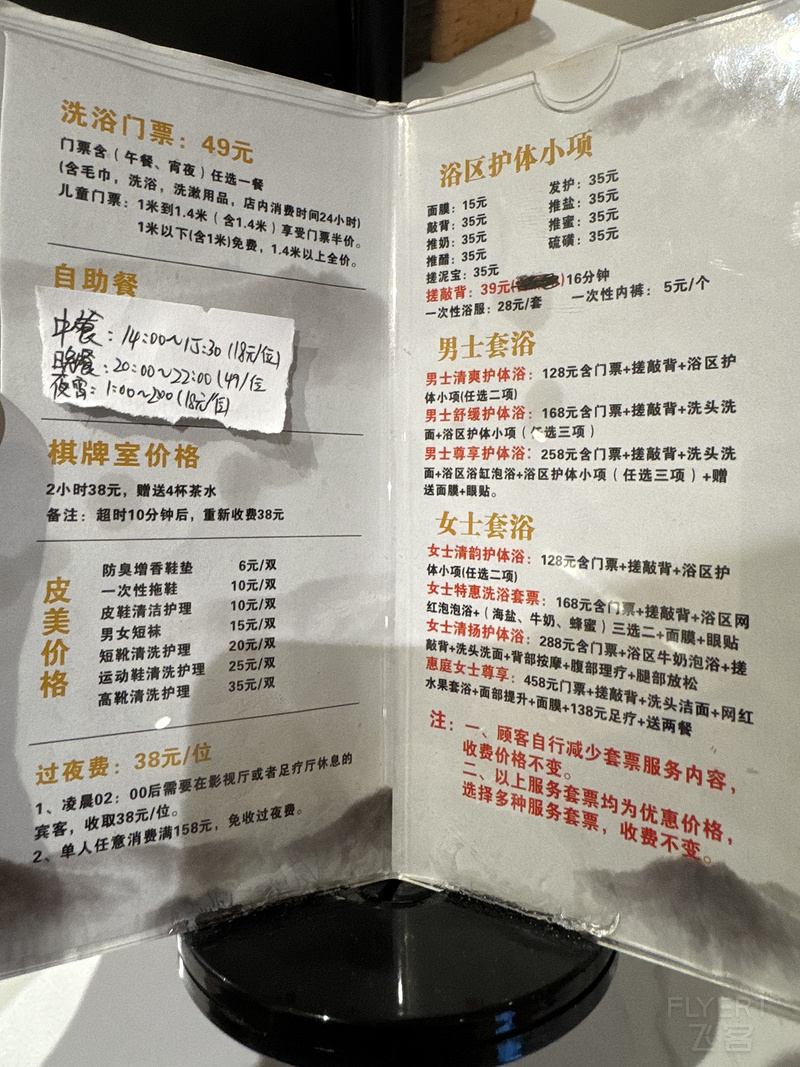 洗浴门票：49元
门票含（午餐、宵夜）任选一餐
(含毛巾，洗浴，洗漱用品，店内消费时间24小时)
儿童门票：1米到1.4米（含1.4米）享受门票半价。
1米以下(含1米)免费，1.4米以上全价。
自助餐
中餐：14:00~15:30 (18元/位)
晚餐：20:00~22:00 (49/位
夜宵：1:00~2:00 (18元/位)
棋牌室价格
2小时38元，赠送4杯茶水
备注：超时10分钟后，重新收费38元
皮美价格
防臭增香鞋垫 6元/双
一次性拖鞋 10元/双
皮鞋清洁护理 10元/双
男女短袜 15元/双
短靴清洗护理 20元/双
运动鞋清洗护理 25元/双
高靴清洗护理 35元/双
过夜费：38元/位
1、凌晨02：00后需要在影视厅或者足疗厅休息的
宾客，收取38元/位。
2、单人任意消费满158元，免收过夜费。
浴区护体小项
面膜：15元 发护：35元
敲背：35元 推盐：35元
推奶：35元 推蜜：35元
推醋：35元 硫磺：35元
搓泥宝：35元
搓敲背：39元( )16分钟
一次性浴服：28元/套 一次性内裤：5元/个
男士套浴
男士清爽护体浴：128元含门票+搓敲背+浴区护
体小项(任选二项)
男士舒缓护体浴：168元含门票+搓敲背+洗头洗
面+浴区护体小项（任选三项）
男士尊享护体浴：258元含门票+搓敲背+洗头洗
面+浴区浴缸泡浴+浴区护体小项（任选三项）+赠
送面膜+眼贴。
女士套浴
女士清韵护体浴：128元含门票+搓敲背+浴区护
体小项(任选二项)
女士特惠洗浴套票：168元含门票+搓敲背+浴区网
红泡泡浴+（海盐、牛奶、蜂蜜）三选二+面膜+眼贴
女士清扬护体浴：288元含门票+浴区牛奶泡浴+搓
敲背+洗头洗面+背部按摩+腹部理疗+腿部放松
惠庭女士尊享：458元门票+搓敲背+洗头洁面+网红
水果套浴+面部提升+面膜+138元足疗+送两餐
注：一、顾客自行减少套票服务内容，
收费价格不变。
二、以上服务套票均为优惠价格，
选择多种服务套票，收费不变。
FLYERT
飞客